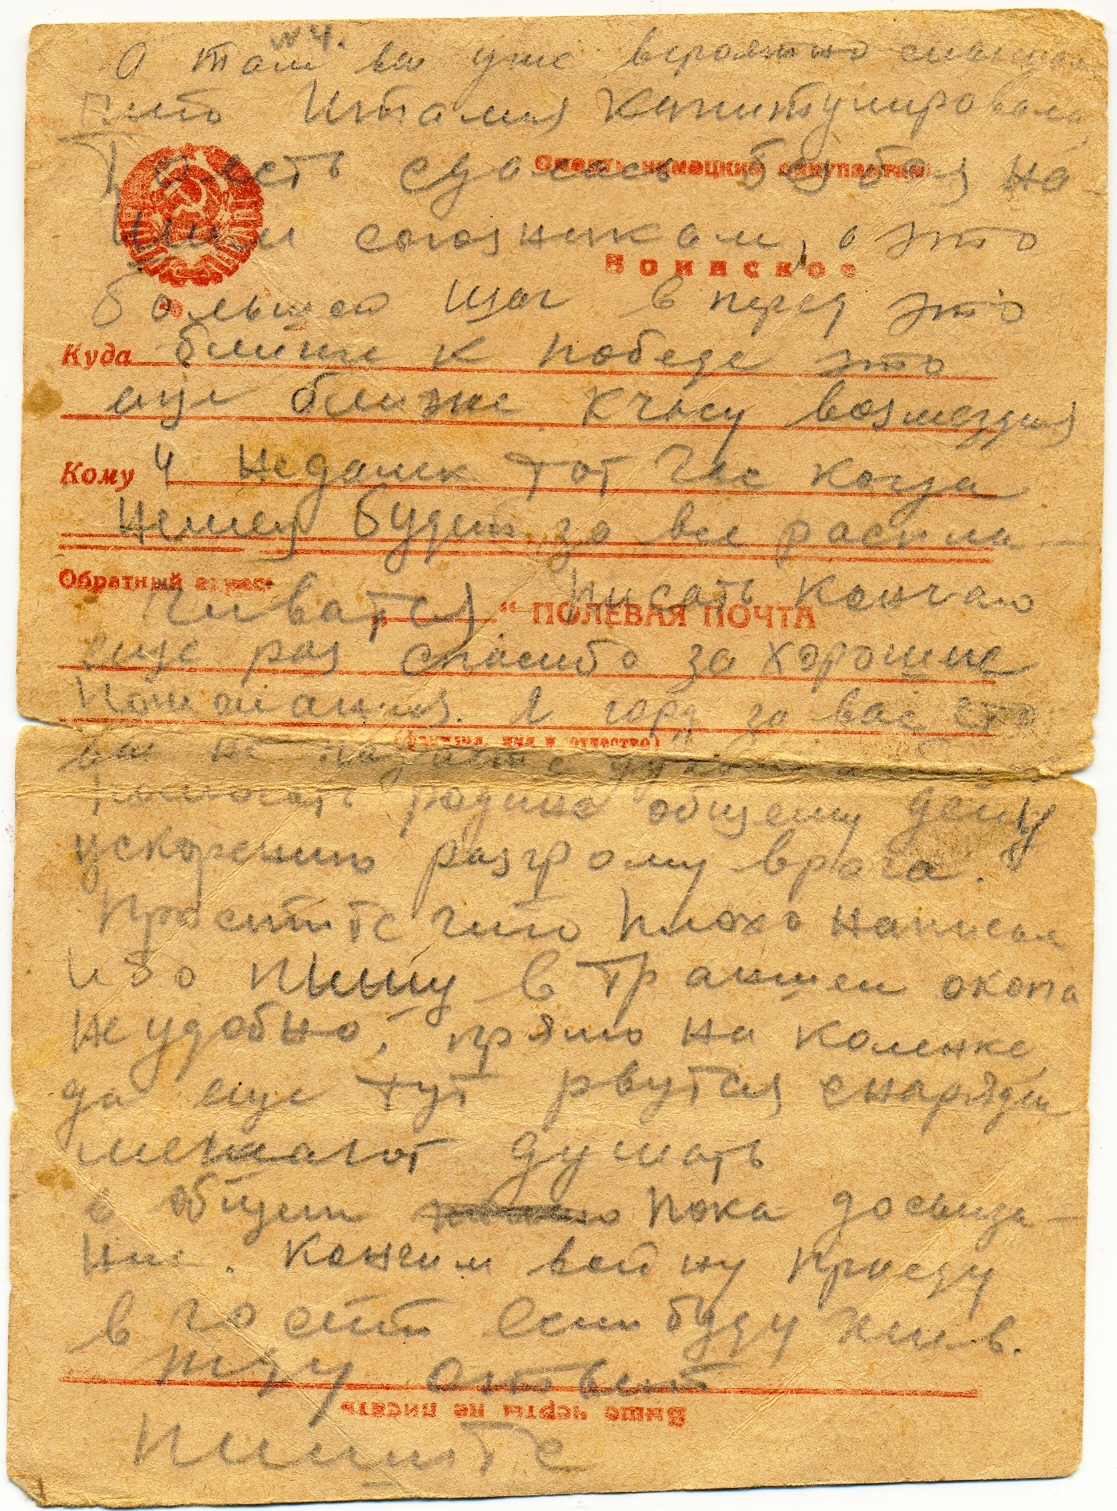 № 4.
А там вы уже вероятно слышали
что Италия Капитулировала
То есть сдалась без боя на-
Смерть немецким оккупантам!
шим союзникам, а это
Воинское
большой шаг в перед это
Куда ближе к победе это
еще ближе к часу возмездия
Кому И недалек тот час когда
Немец будет за все распла-
Обратный адрес:
чиватся. Писать кончаю
„ “ ПОЛЕВАЯ ПОЧТА
еще раз спасибо за хорошие
пожелания. Я горд за вас что
вы не падаете духом
помогать родине общему делу
ускорению разгрому врага.
Простите что плохо написал
ибо пишу в траншеи окопа
не удобно, прямо на коленке,
да еще тут рвутся снаряды
мешают думать
в общем пока досвида-
ние. Кончим войну приеду
в гости если буду жив.
Жду ответ
Выше черты не писать
Пишите